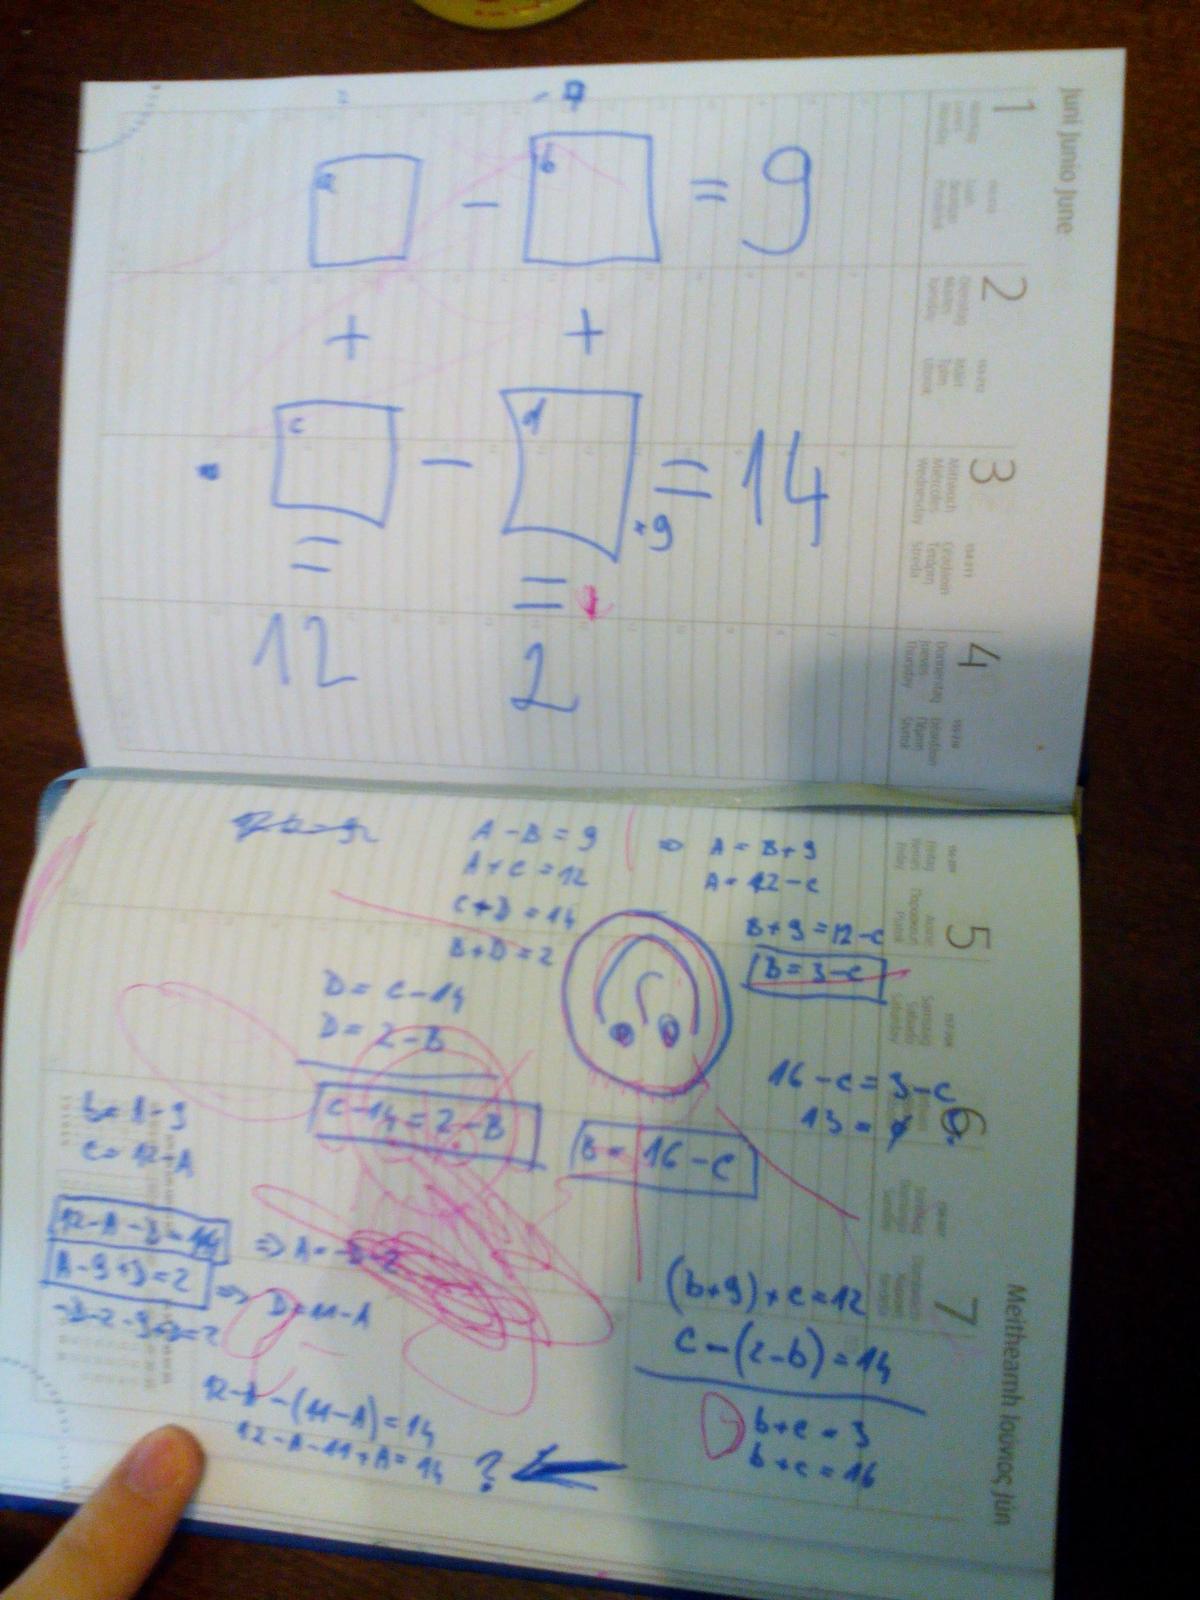 Juni Junio June
1
2
3
4
a - b = 9
+ +
c - d = 14
+9
= =
12 2
Mittwoch
Miércoles
Wednesday
Streda
Donnerstag
Jueves
Thursday
5
6
7
Meitheamh Ιούνιος Jún
A - B = 9
A + C = 12
C + D = 14
B + D = 2
⇒ A = B + 9
A = 12 - C
B + 9 = 12 - C
B = 3 - C
D = C - 14
D = 2 - B
C - 14 = 2 - B
B = 16 - C
16 - C = 3 - C
13 =
b = A - 9
C = 12 - A
12 - A - D = 14
⇒ A = -D - 2
A - 9 + D = 2
⇒ D = 11 - A
-D - 2 - 9 + D = 2
12 - A - (11 - A) = 14
12 - A - 11 + A = 14 ?
(b + 9) + c = 12
c - (2 - b) = 14
b + c = 3
b + c = 16